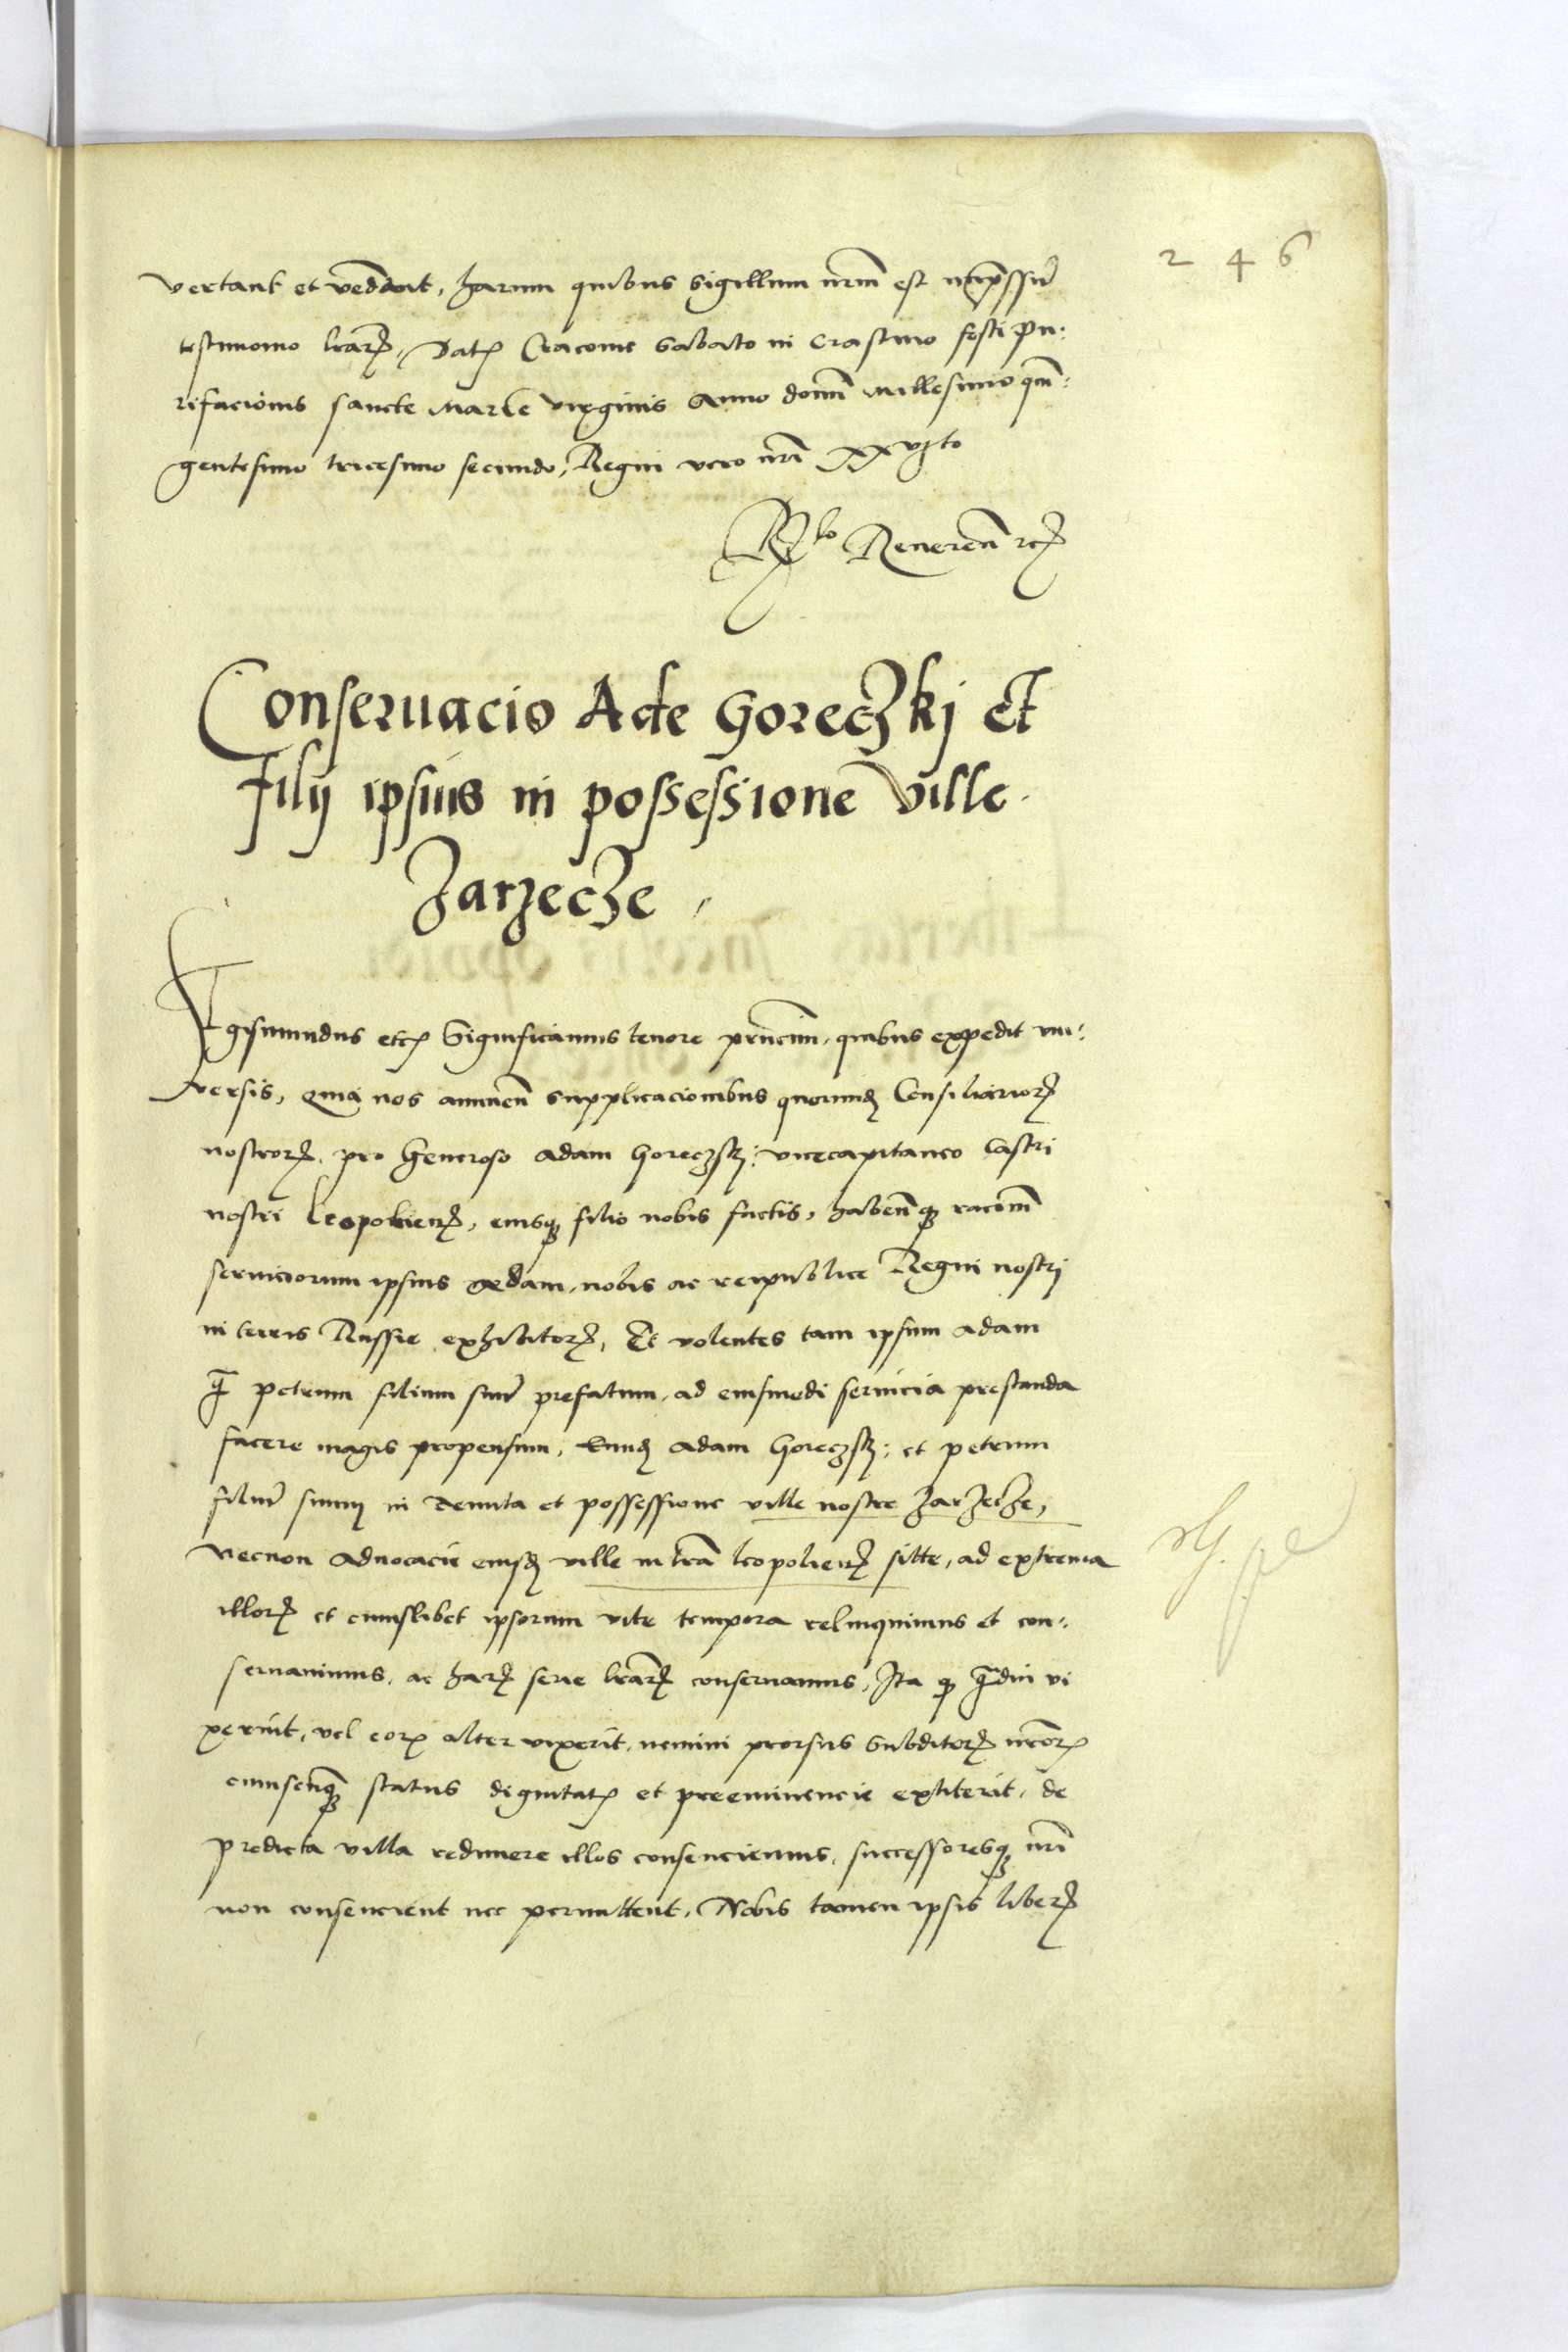 246
vertant et vendant, harum quibus Sigillum nrm̃ est imp̃ssũ
testimonio lrarꝝ, Datꝫ Cracovie Sabato in Crastino festi pu:
rificacionis sancte Marie virginis Anno domĩ Millesimo qui͂n:
gentesimo tricesimo secundo, Regni vero nrĩ xxvjto
Rlo Reneren̄ rcꝭ
Conseruacio Ade Goreczkj Et
filij ipsius in possessione ville
Zarzecze,
Sigismundus etcꝭ Significamus tenore prncium, quibus expedit vni:
versis, Quia nos annuen̄ supplicacionibus quorundꝫ Consiliariorꝝ
nostrorꝝ pro Generoso Adam Goreczskj: vicecapitaneo Castri
nostri leopolienꝭ, eiusqꝫ filio nobis factis, habenn̄qꝫ racionẽm
serviciorum ipsius Adam, nobis ac reipublice Regni nostrj
in terris Russie exhibitorꝝ, Et volentes tam ipsum Adam
q̃ Petrum filium suũ prefatum, ad eiusmodi servicia prestanda
facere magis propensum, Eundꝫ Adam Goreczskj: et petrum
filiũ suum in Tenuta et possessione ville nostre Zarzecze,
Necnon advocacie eiusdꝫ ville in trã leopolienꝭ sitte, ad extrema
illorꝝ et cuiuslibet ipsorum vite tempora relinquimus et con:
servavimus, ac harꝝ serie lrarꝝ conservamus, Ita qꝫ q̃diu vi
xerint, vel eorꝝ alter vixerit, nemini prorsus Subditorꝝ nrorꝝ
cuiuscunqꝫ status dignitatꝭ et preeminencie extiterit, de
predicta villa redimere illos consenciemus, successoresqꝫ nrĩ
non consencient nec permittent, Nobis tamen ipsis liberꝫ